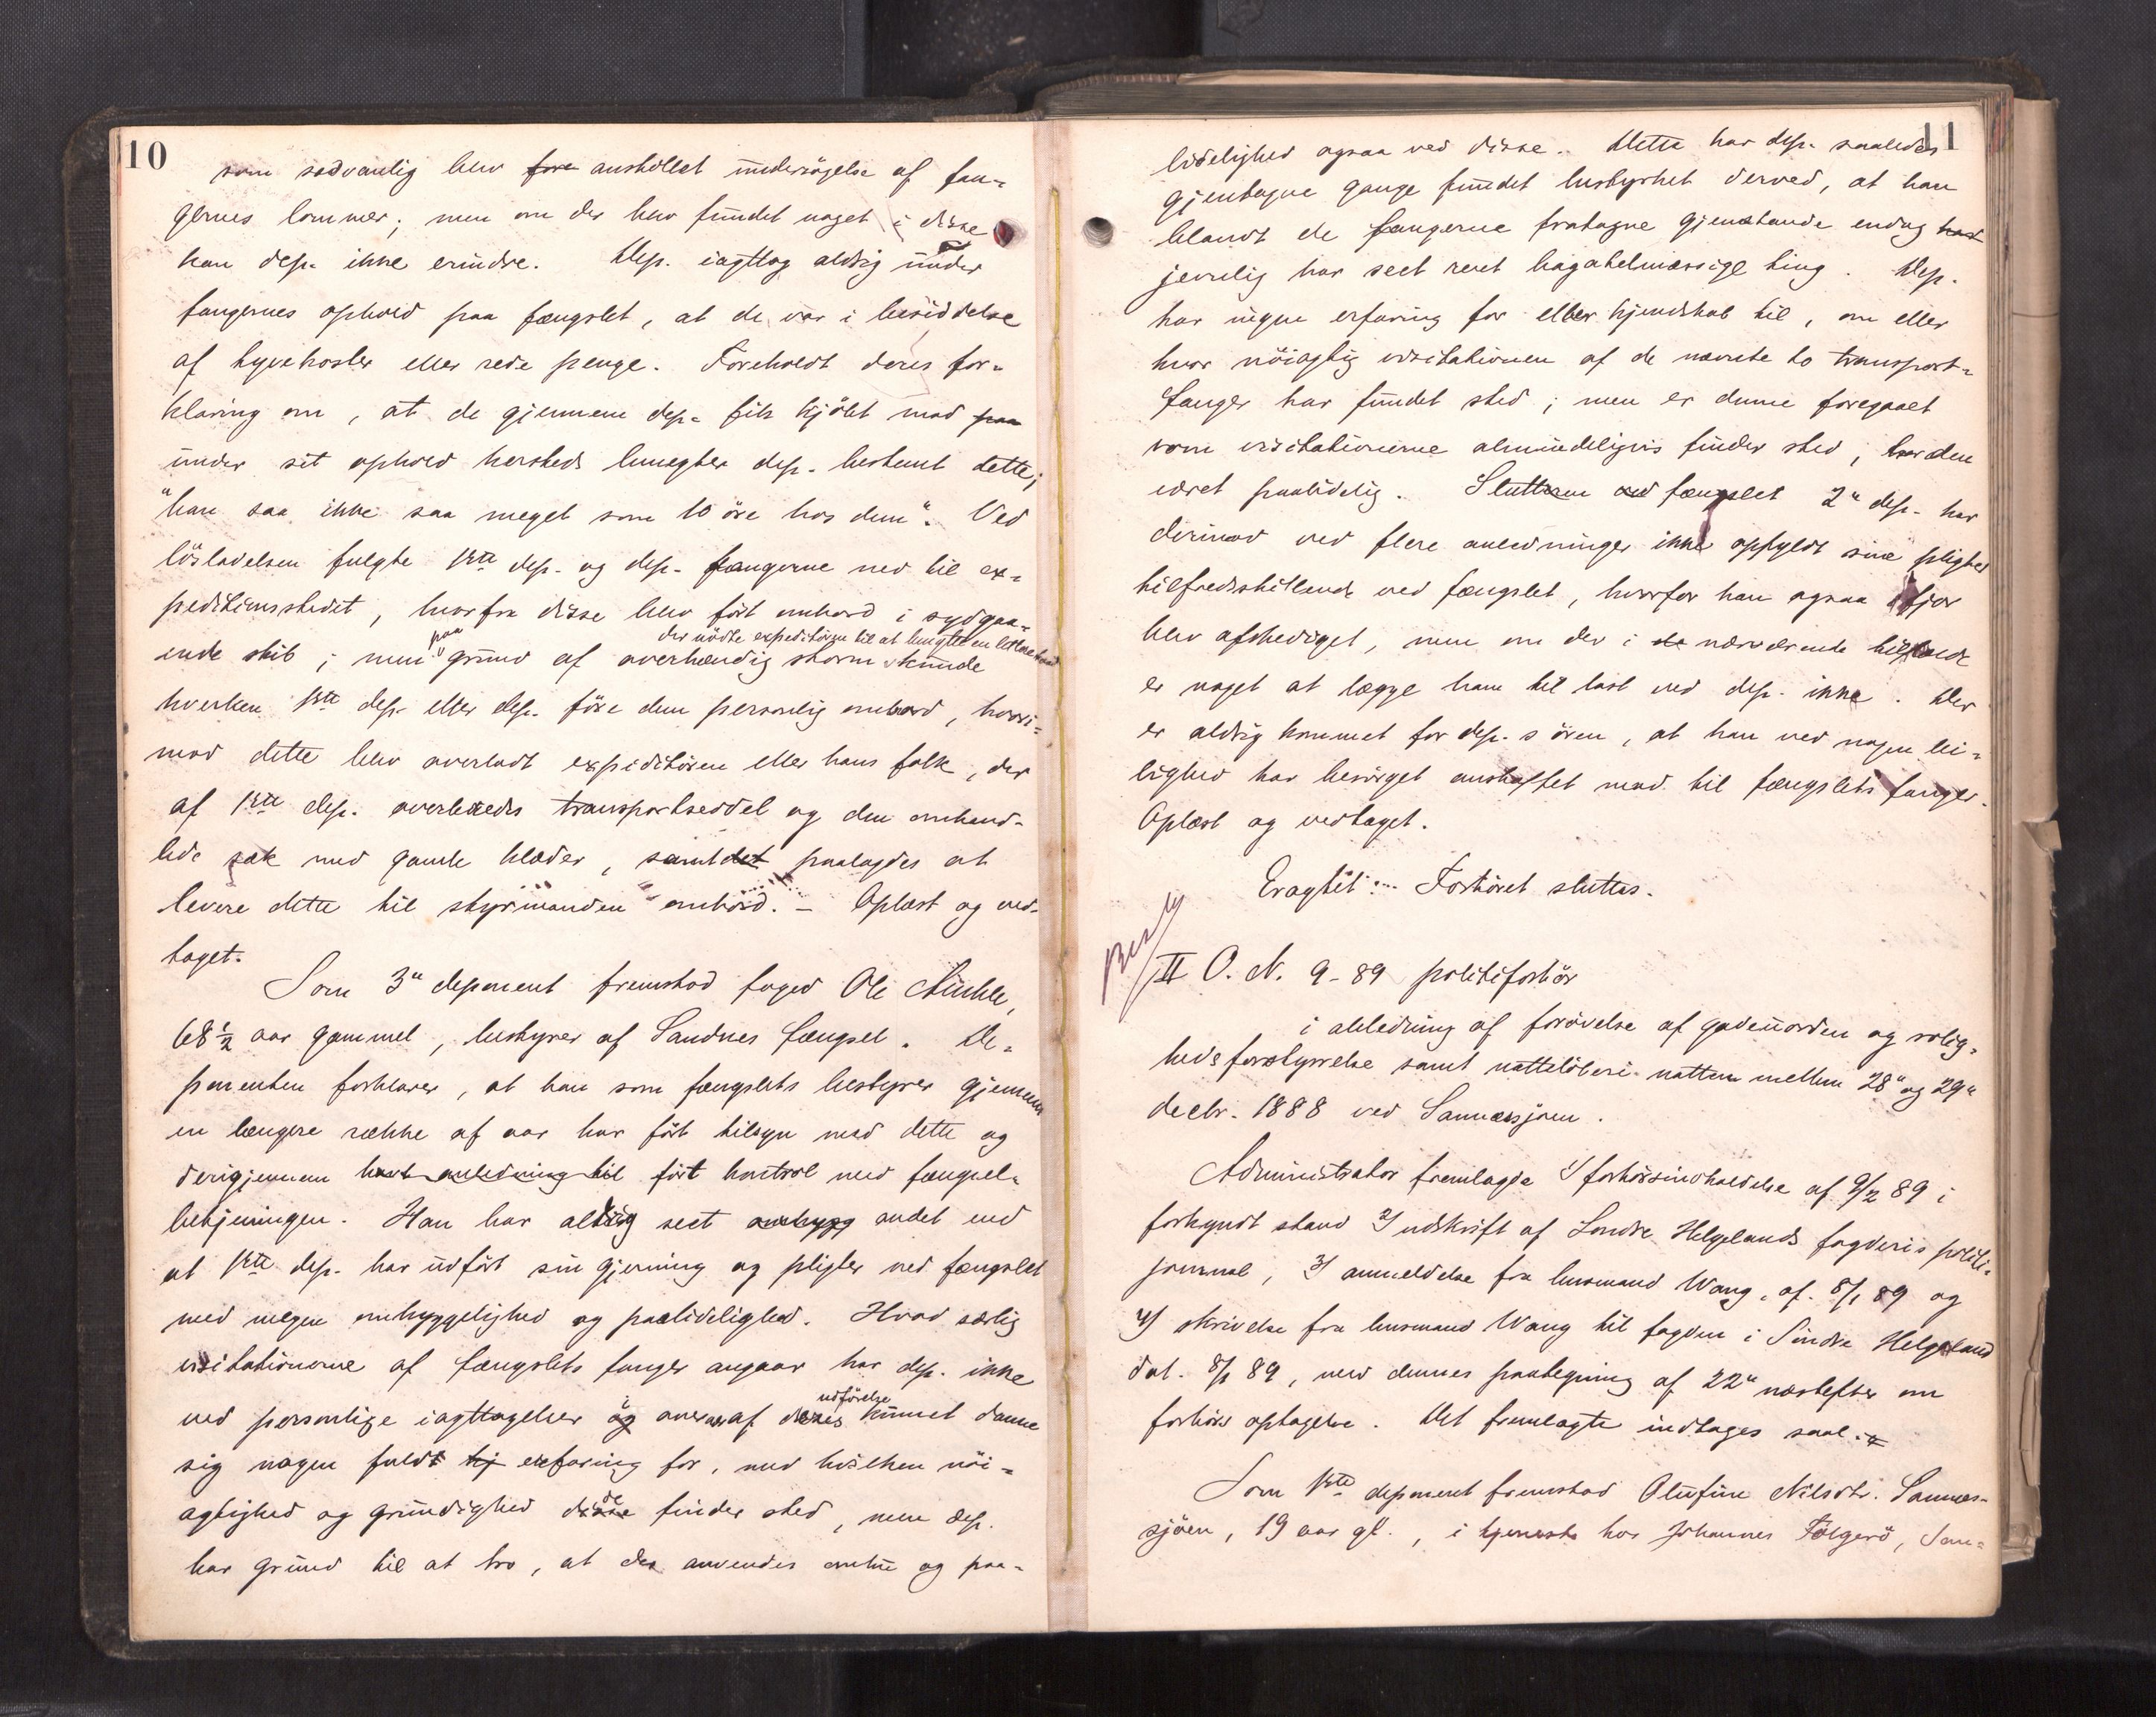 10
som sædvanlig blev fore anstillet undersøgelse af fan-
gernes lommer; men om der blev fundet noget i disse
kan dep. ikke erindre. Dep. iagttog aldrig under
fangernes ophold paa fængslet, at de var i besiddelse
af tyvekoster eller rede penge. Foreholdt deres for-
klaring om, at de gjennem dep. fik kjöbt mad paa
under sit ophold hersteds benegter dep. bestemt dette;
"han saa ikke saa meget som 10 öre hos dem". Ved
lösladelsen fulgte 1ste dep. og dep. fangerne ned til ex-
peditionsstedet, hvorfra disse blev fört ombord i sydgaa-
ende skib; men paa grund af overhændig storm der nödte expeditören til at benytte en
kunde
hverken 1ste dep. eller dep. före dem personlig ombord, hvori-
mod dette blev overladt expeditören eller hans folk, der
af 1ste dep. overleveredes transportseddel og den omhand-
lede sæk med gamle klæder, samt det paalagdes at
levere dette til styrmanden ombord. – Oplæst og ved-
taget.
Som 3" deponent fremstod foged Ole
68 1/2 aar gammel, bestyrer af Sandnes fængsel. De-
ponenten forklarer, at han som fængslets bestyrer gjennem
en længere række af aar har fört tilsyn med dette og
derigjennem havt anledning til fört kontrol med fængsel-
betjeningen. Han har aldrig seet andet end
at 1ste dep. har udfört sin gjerning og pligter ved fængslet
med megen omhyggelighed og paalidelighed. Hvad særlig
visitationerne af fængslets fanger angaar har dep. ikke
ved personlige iagttagelser og overvær af deres udförelse kunnet danne
sig nogen fuldt kj erfaring for, med hvilken nöi-
agtighed og grundighed disse de finder sted, men dep.
har grund til at tro, at der anvendes omhu og paa-
11
lidelighed ogsaa ved disse. Dette har dep. saaledes
gjentagne gange fundet bestyrket derved, at han
blandt de fangerne fratagne gjenstande endog havt
jevnlig har seet rent bagatelmæssige ting. Dep.
har ingen erfaring for eller kjendskab til, om eller
hvor nöiagtig visitationen af de nævnte to transport-
fanger har fundet sted; men er denne foregaaet
som visitationerne almindeligvis finder sted, har den
været paalidelig. Slutteren ved fængslet 2" dep. har
derimod ved flere anledninger ikke opfyldt sine pligter
tilfredsstillende ved fængslet, hvorfor han ogsaa ifjor
blev afskediget, men om der i de nærværende tilfælde
er noget at lægge ham til last ved dep. ikke. Der
er aldrig kommet for dep.s ören, at han ved nogen lei-
lighed har besörget anskaffet mad til fængslets fanger.
Oplæst og vedtaget.
Eragtet: Forhöret sluttes.
II O. N. 9-89 politiforhör
i anledning af forövelse af gadeuorden og rolig-
hedsforstyrrelse samt natteløberi natten mellem 28" og 29"
decbr. 1888 ved Sannæssjøen.
Administrator fremlagde 1/ forhørsindkaldelse af 9/2 89 i
forkyndt stand 2/ udskrift af Søndre Helgelands fogderis politi-
journal, 3/ anmeldelse fra lensmand Wang, af. 8/1 89 og
4/ skrivelse fra lensmand Wang til fogden i Søndre Helgeland
dat. 8/1 89, med dennes paategning af 22" næstefter om
forhörs optagelse. Det fremlagte indtages saal.
Som 1ste deponent fremstod Olufine Nilsdtr. Sannes-
sjöen, 19 aar gl., i tjeneste hos Johannes Fölgerö, San-